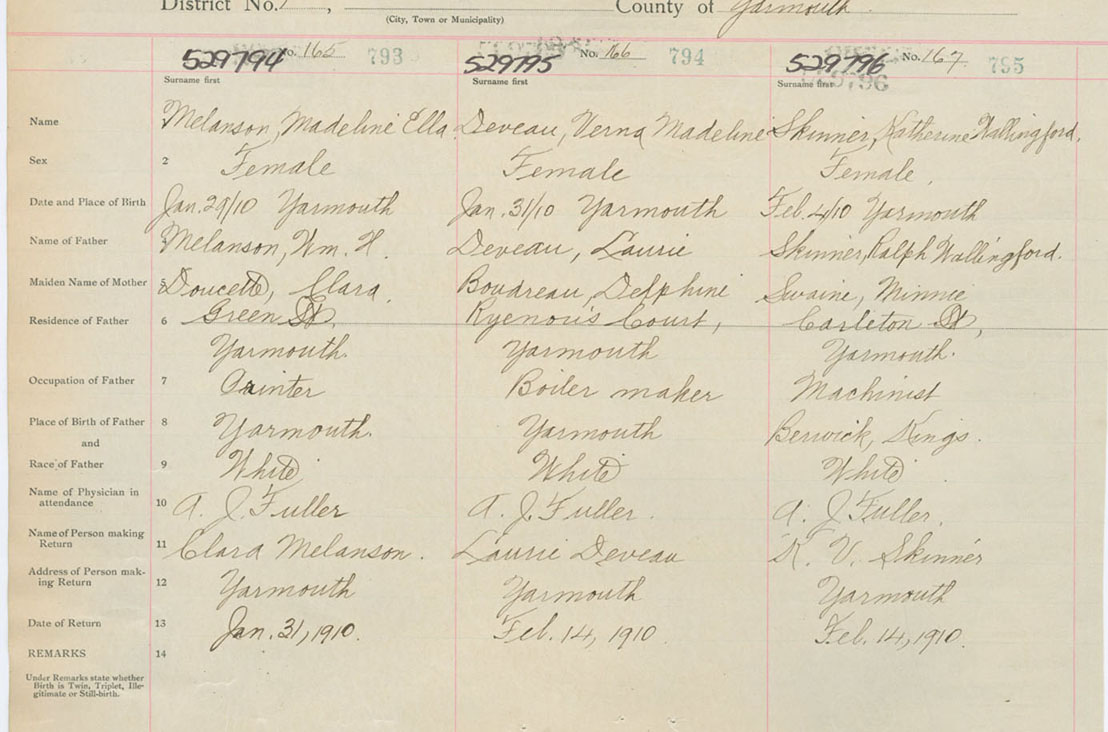 District No. 1, County of Yarmouth
(City, Town or Municipality)
529794 No. 165 793 529795 No. 166 794 529796 No. 167 795
Surname first Surname first Surname first
Name Melanson, Madeline Ella Deveau, Verna Madeline Skinner, Katherine Wallingford.
Sex 2 Female Female Female.
Date and Place of Birth Jan. 29/10 Yarmouth Jan. 31/10 Yarmouth Feb. 4/10 Yarmouth
Name of Father Melanson, Wm. H. Deveau, Laurie Skinner, Ralph Wallingford.
Maiden Name of Mother 5 Doucett, Clara. Boudreau, Delphine Swaine, Minnie
Residence of Father 6 Green St, Court, Carleton St,
Yarmouth. Yarmouth Yarmouth.
Occupation of Father 7 Painter Boiler maker Machinist
Place of Birth of Father 8 Yarmouth. Yarmouth Berwick, Kings.
and
Race of Father 9 White White White
Name of Physician in
attendance 10 A. J. Fuller A. J. Fuller. A. J. Fuller.
Name of Person making
Return 11 Clara Melanson. Laurie Deveau R. V. Skinner
Address of Person mak-
ing Return 12 Yarmouth Yarmouth Yarmouth
Date of Return 13 Jan. 31, 1910. Feb. 14, 1910 Feb. 14, 1910.
REMARKS 14
Under Remarks state whether
Birth is Twin, Triplet, Ille-
gitimate or Still-birth.